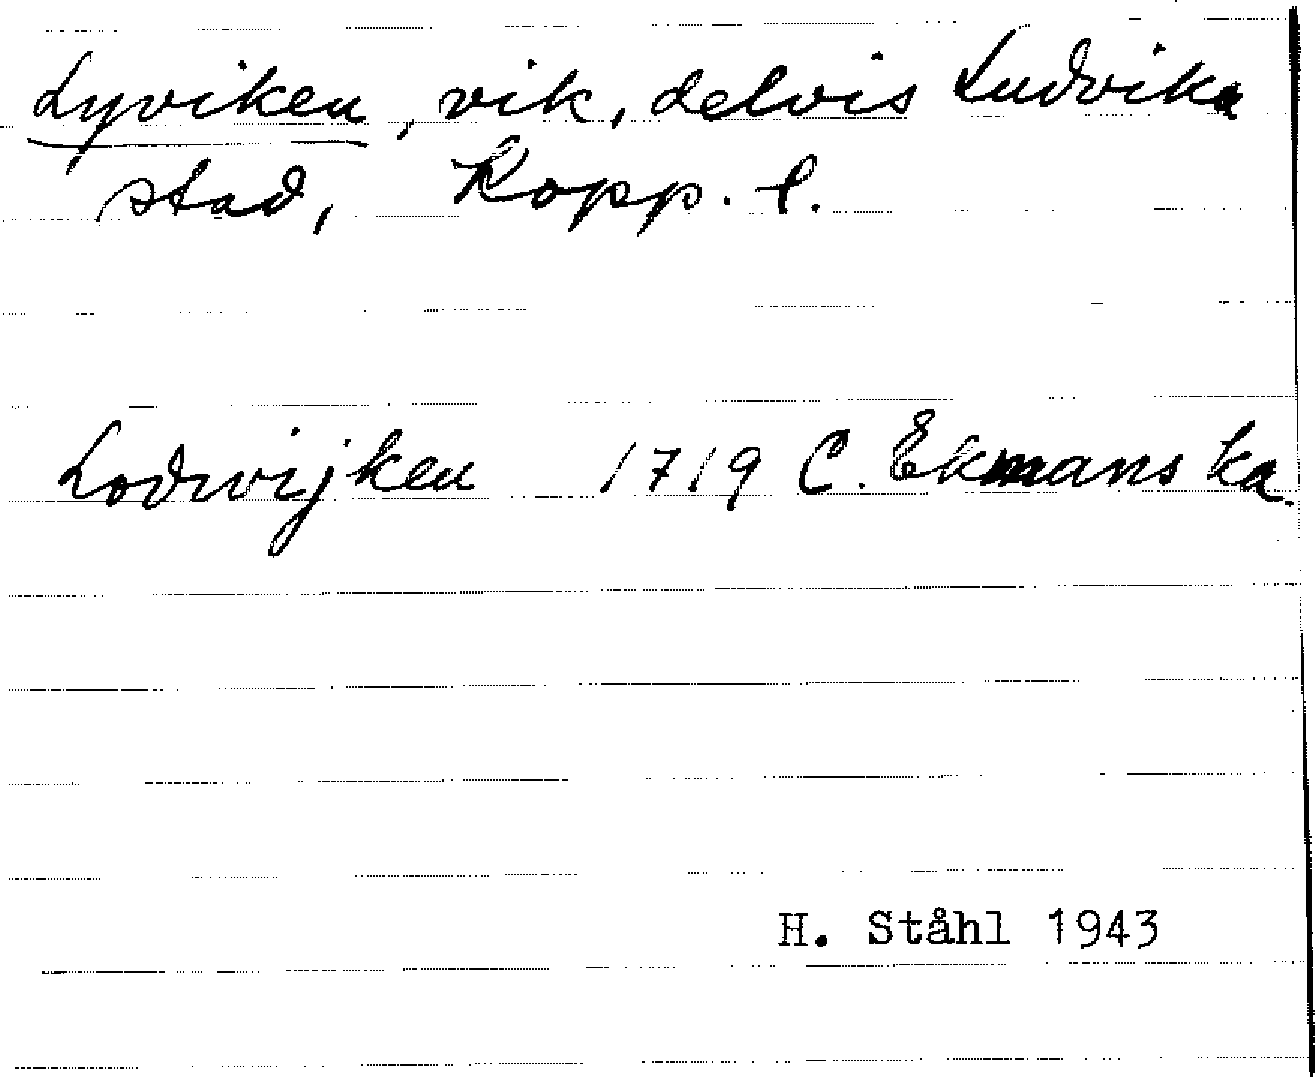 Lyviken, vik, delvis Ludvika
stad, Kopp. l.
Lodwijken 1719 C. Ekmans ka.
H. Ståhl 1943